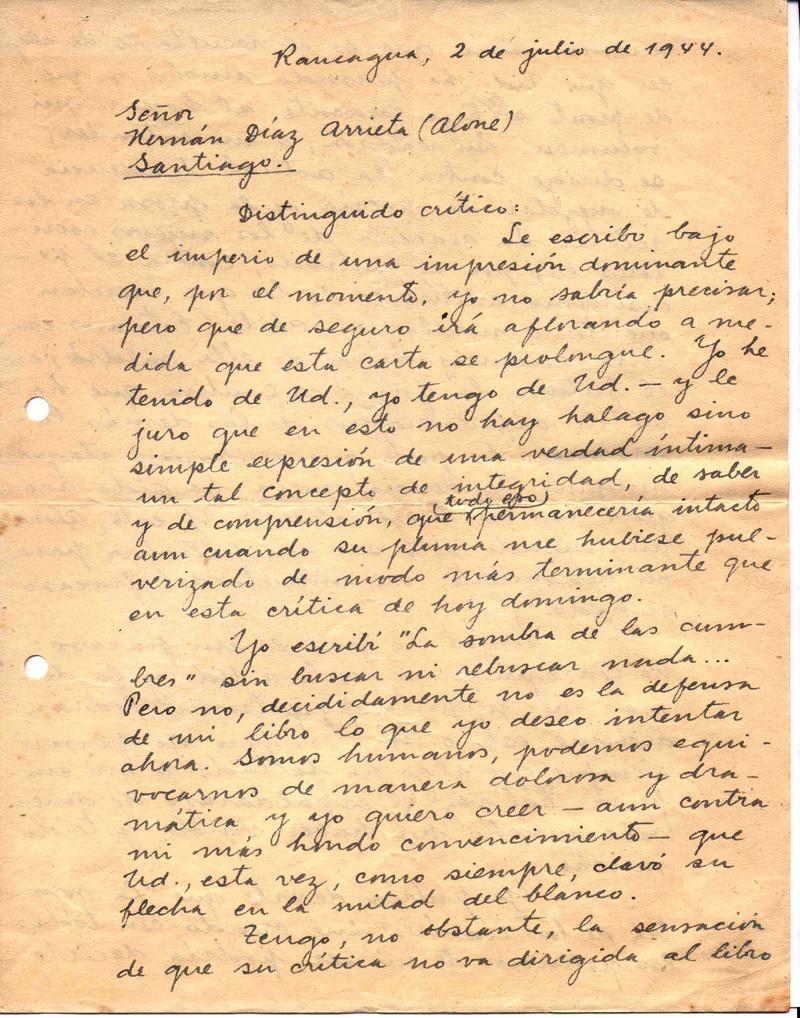 Rancagua, 2 de julio de 1944.
Señor
Hernán Díaz Arrieta (Alone)
Santiago.
Distinguido crítico:
Le escribo bajo
el imperio de una impresión dominante
que, por el momento, yo no sabría precisar;
pero que de seguro irá aflorando a me-
dida que esta carta se prolongue. Yo he
tenido de Ud., yo tengo de Ud. — y le
juro que en esto no hay halago sino
simple expresión de una verdad íntima —
un tal concepto de integridad, de saber
y de comprensión, que (todo eso) permanecería intacto
aun cuando su pluma me hubiese pul-
verizado de modo más terminante que
en esta crítica de hoy domingo.
Yo escribí "La sombra de las cum-
bres" sin buscar ni rebuscar nada...
Pero no, decididamente no es la defensa
de mi libro lo que yo deseo intentar
ahora. Somos humanos, podemos equi-
vocarnos de manera dolorosa y dra-
mática y yo quiero creer — aun contra
mi más hondo convencimiento — que
Ud., esta vez, como siempre, clavó su
flecha en la mitad del blanco.
Tengo, no obstante, la sensación
de que su crítica no va dirigida al libro